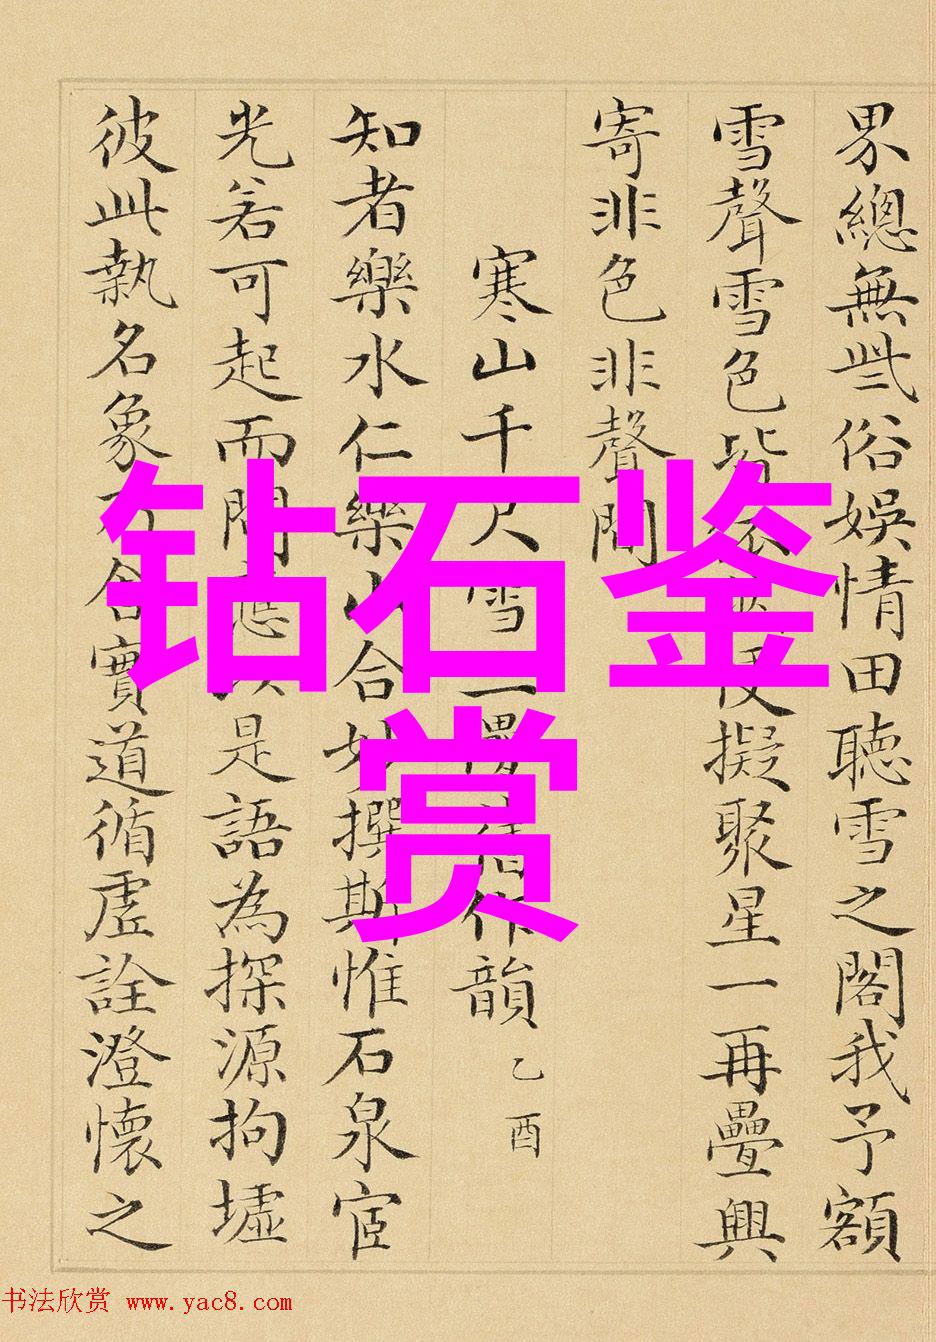 界總無些俗娛情田聽雪之閣我予額
雪聲雪色皆擬聚星一再疊興
寄非色非聲間
寒山千尺雪一作韻 乙酉
知者樂水仁樂山合妙撰斯惟石泉宦
光若可起而問應以是語為探源拘墟
彼此執名象合實道循虛詮澄懷之
钻石鉴
赏
书法欣赏 www.yac8.com